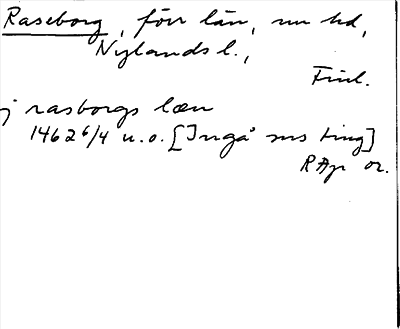 Raseborg, förr län, nu hd,
Nylands l.,
Finl.
j rasborgs læn
1462 6/4 u.o. [Ingå sns ting]
RAp or.